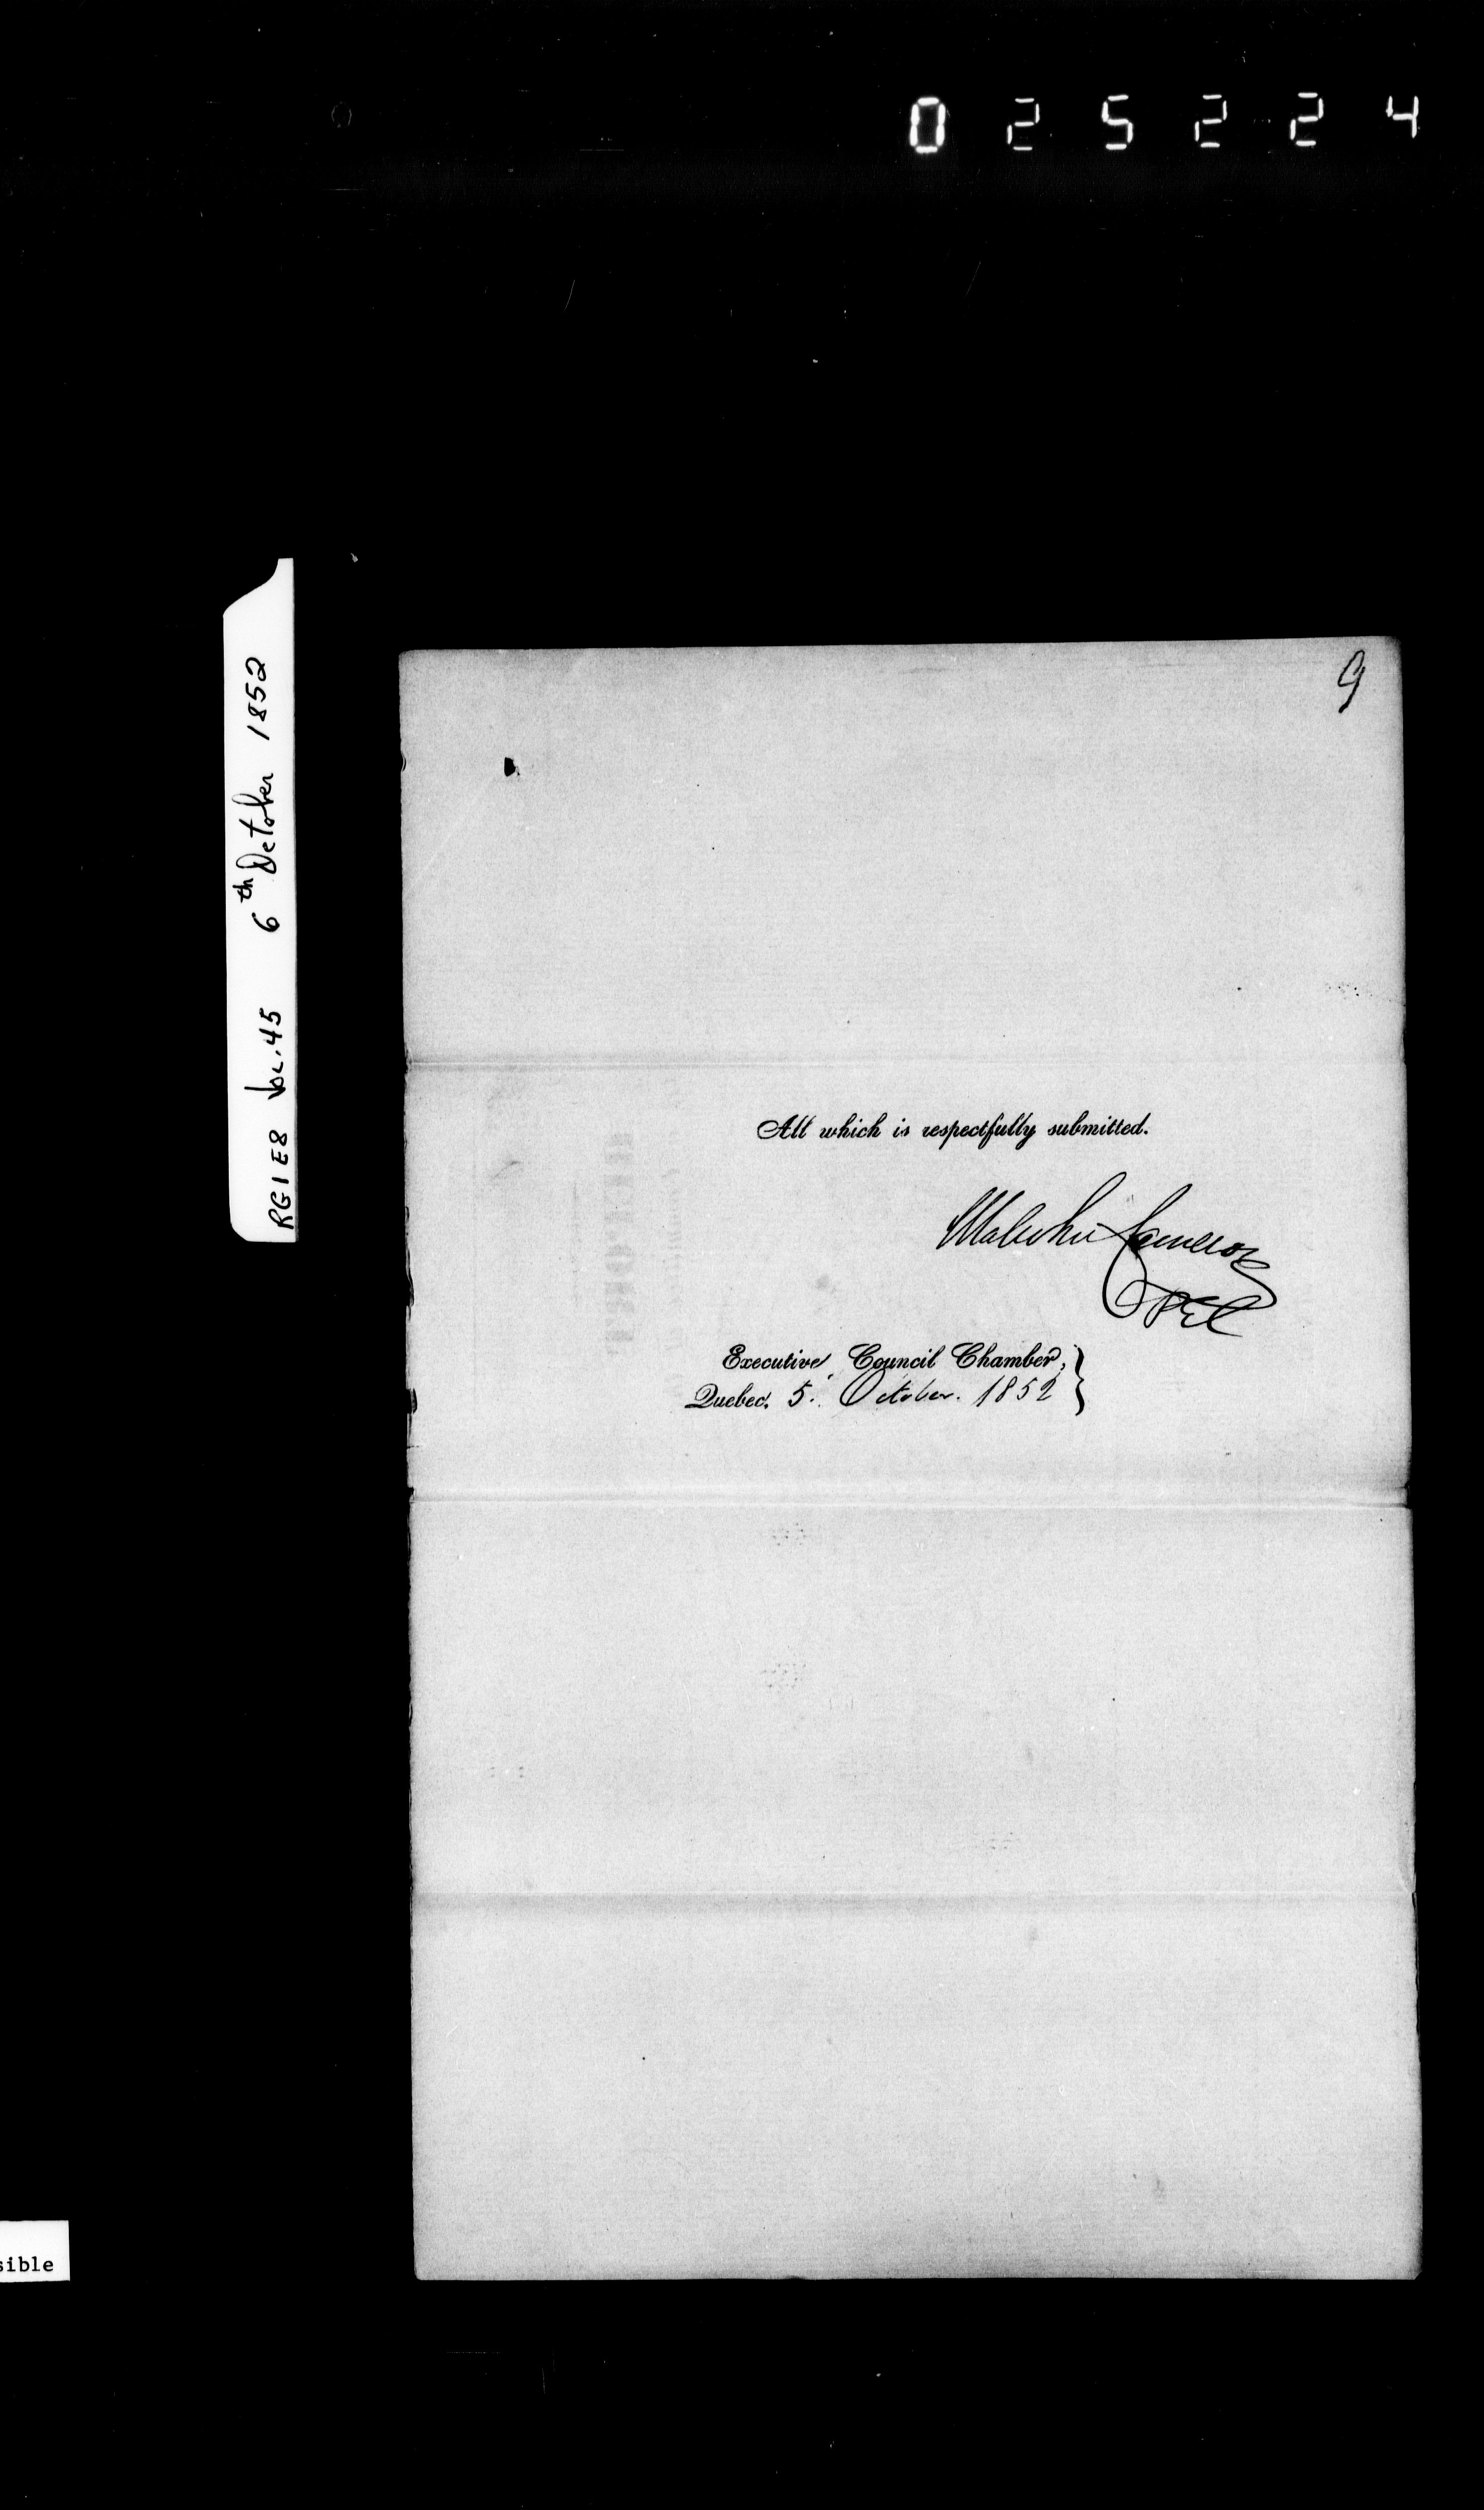 0 2 5 2 2 4
RG1 E8 Vol. 45 6th October 1852
9
All which is respectfully submitted.
Malcolm Cameron
PEC
Executive Council Chamber,
Quebec, 5. October. 1852
sible